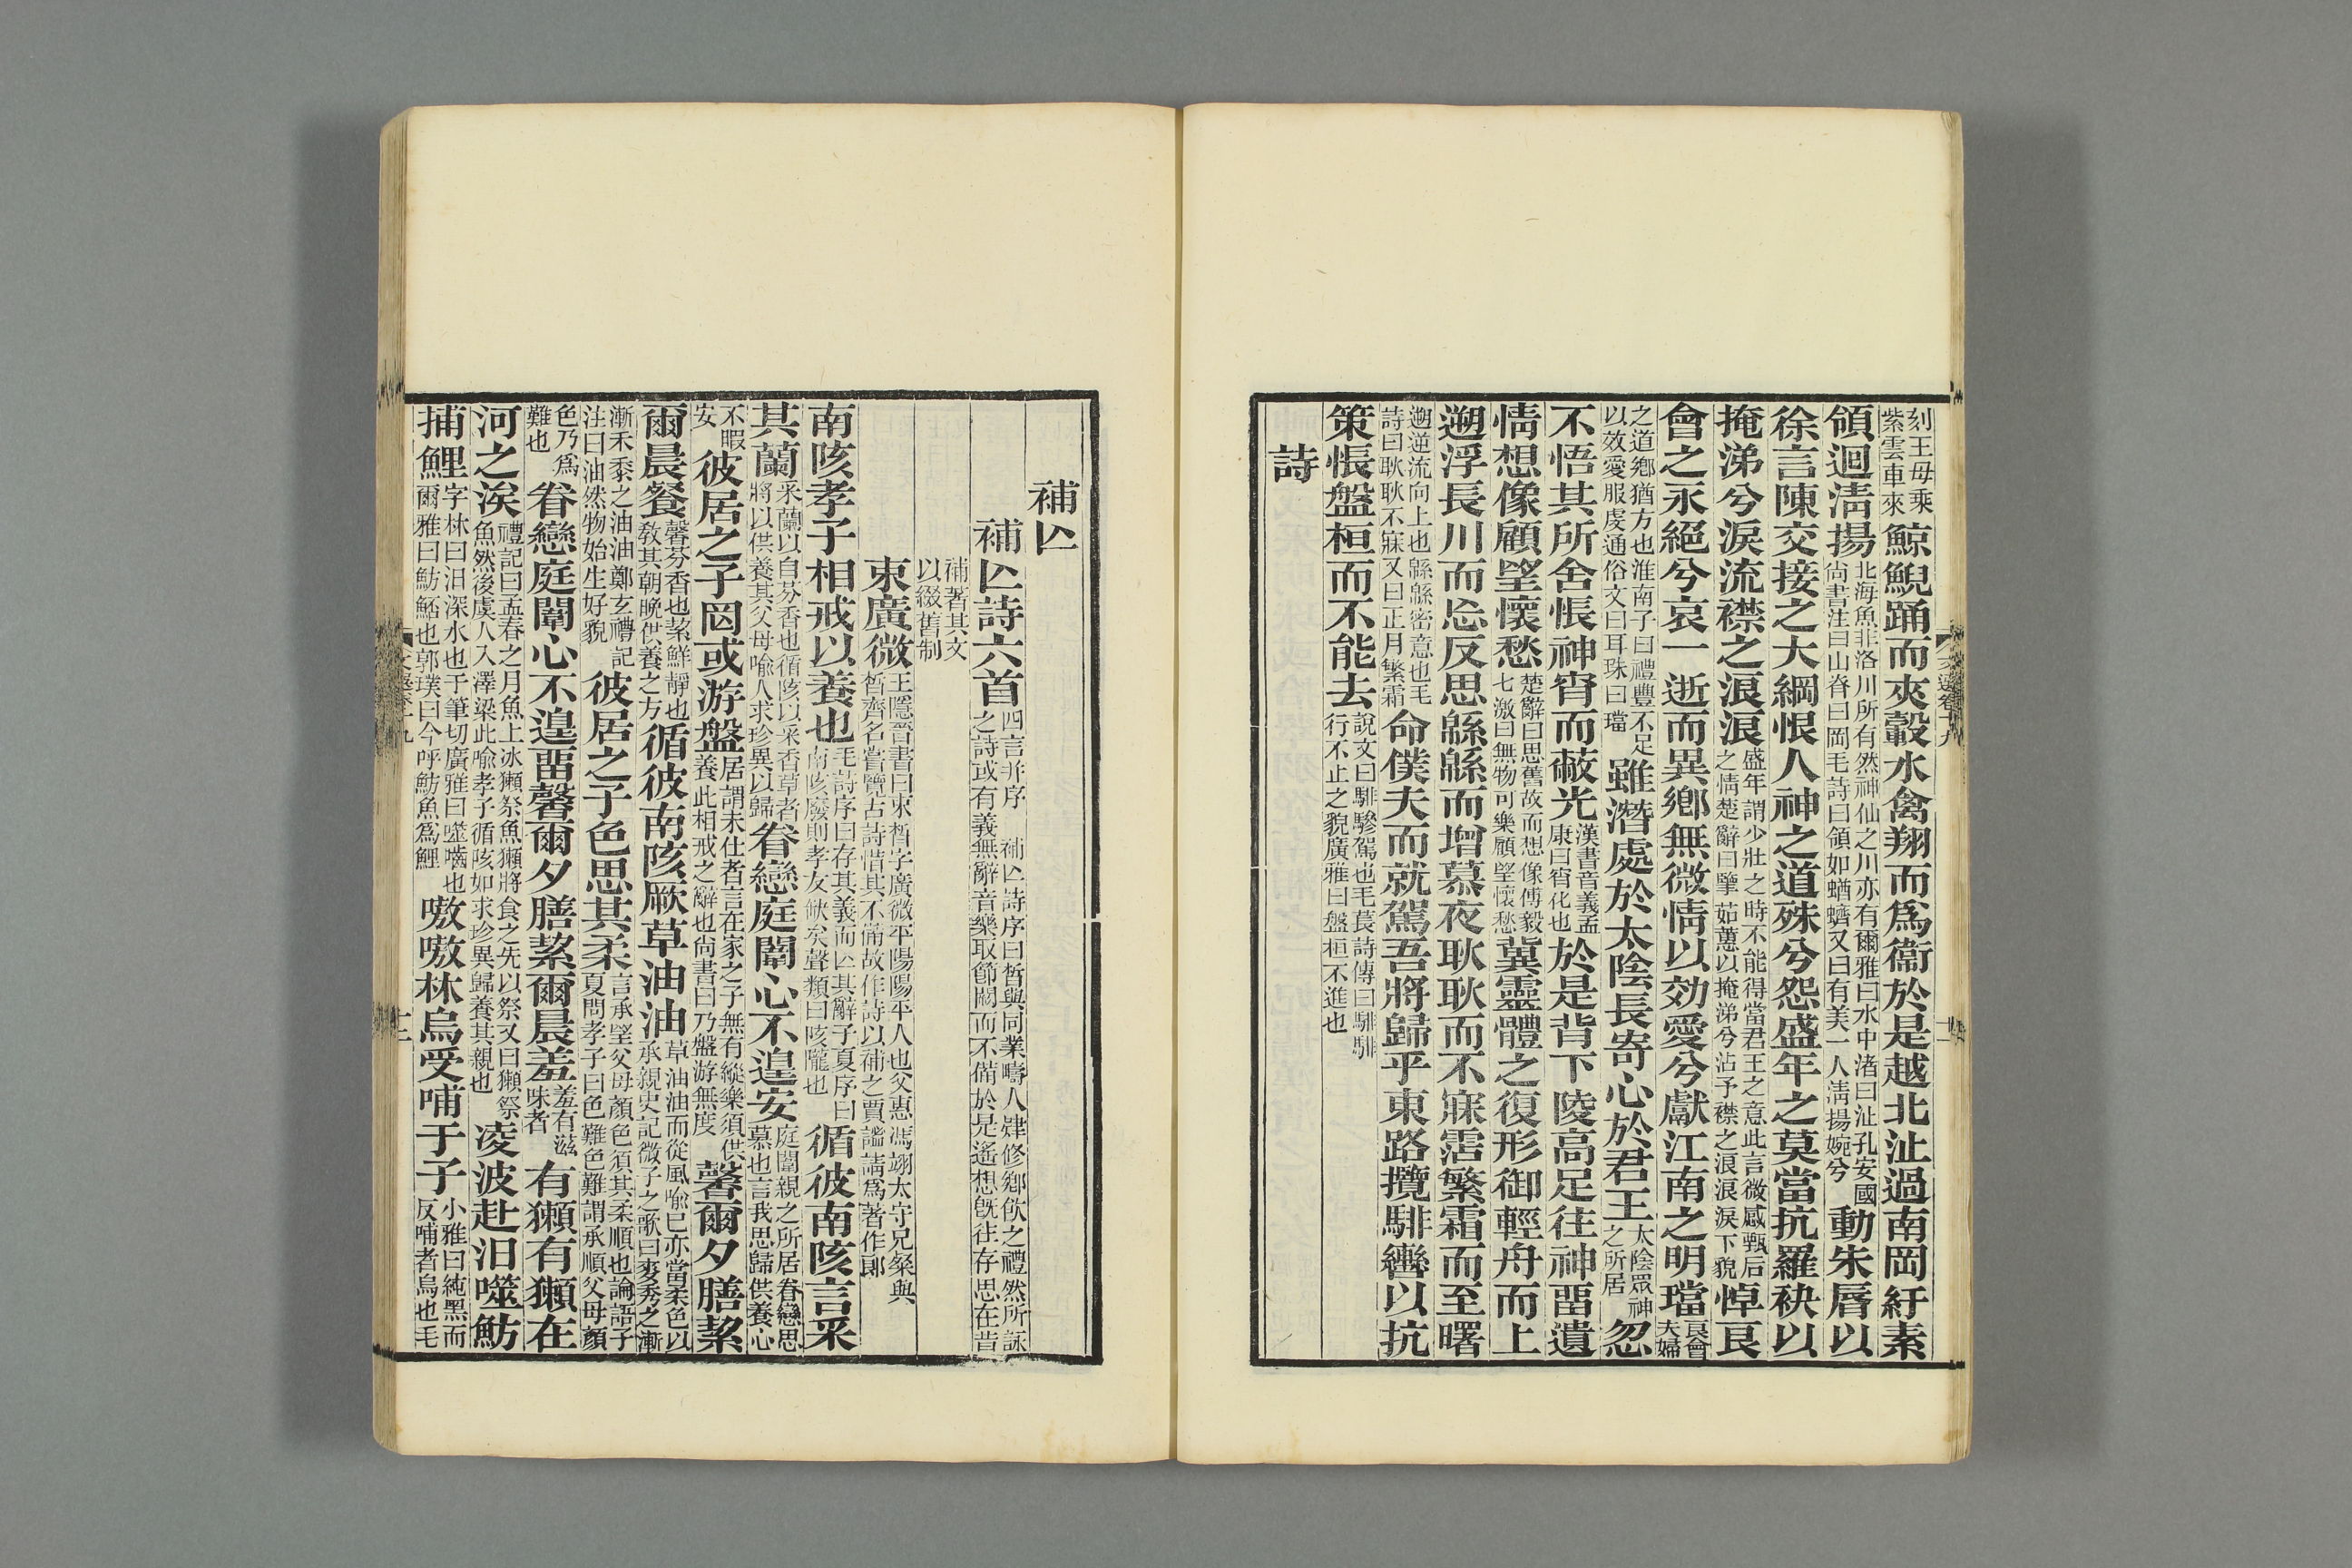 刻王母乘紫雲車來鯨鯢踊而夾轂水禽翔而爲衞於是越北沚過南岡紆素
領迴淸揚北海魚非洛川所有然神仙之川亦有爾雅曰水中渚曰沚孔安國尚書注曰山脊曰岡毛詩曰領如蝤蠐又曰有美一人淸揚婉兮動朱脣以
徐言陳交接之大綱恨人神之道殊兮怨盛年之莫當抗羅袂以
掩涕兮淚流襟之浪浪盛年謂少壯之時不能得當君王之意此言微感甄后之情楚辭曰擥茹蕙以掩涕兮沾予襟之浪浪淚下貌悼良
會之永絕兮哀一逝而異鄕無微情以効愛兮獻江南之明璫良會夫婦
之道鄕猶方也淮南子曰禮豐不足以效愛服虔通俗文曰耳珠曰璫雖潛處於太陰長寄心於君王太陰眾神之所居忽
不悟其所舍悵神宵而蔽光漢書音義孟康曰宵化也於是背下陵高足往神畱遺
情想像顧望懷愁楚辭曰思舊故而想像傅毅七激曰無物可樂顧望懷愁冀靈體之復形御輕舟而上
遡浮長川而忘反思緜緜而增慕夜耿耿而不寐霑繁霜而至曙
遡逆流向上也緜緜密意也毛詩曰耿耿不寐又曰正月繁霜命僕夫而就駕吾將歸乎東路攬騑轡以抗
策悵盤桓而不能去說文曰騑驂駕也毛萇詩傳曰騑騑行不止之貌廣雅曰盤桓不進也
詩
補亾
補亾詩六首四言并序 補亾詩序曰晳與同業疇人肄修鄕飮之禮然所詠之詩或有義無辭音樂取節闕而不備於是遙想旣往存思在昔
補著其文以綴舊制
束廣微王隱晉書曰束晳字廣微平陽陽平人也父惠馮翊太守兄璨與晳齊名嘗覽古詩惜其不備故作詩以補之賈謐請爲著作郞
南陔孝子相戒以養也毛詩序曰存其義而亾其辭子夏序曰南陔廢則孝友缺矣聲類曰陔隴也循彼南陔言采
其蘭采蘭以自芬香也循陔以采香草者將以供養其父母喻人求珍異以歸眷戀庭闈心不遑安庭闈親之所居眷戀思慕也言我思歸供養心
不暇安彼居之子罔或游盤居謂未仕者言在家之子無有縱樂須供養此相戒之辭也尙書曰乃盤游無度馨爾夕膳絜
爾晨餐馨芬香也絜鮮靜也敎其朝晚供養之方循彼南陔厥草油油草油油而從風喻已亦當柔色以承親史記微子之歌曰麥秀之漸
漸禾黍之油油鄭玄禮記注曰油然物始生好貌彼居之子色思其柔言承望父母顏色須其柔順也論語子夏問孝子曰色難色難謂承順父母顏
色乃爲難也眷戀庭闈心不遑畱馨爾夕膳絜爾晨羞羞有滋味者有獺有獺在
河之涘禮記曰孟春之月魚上冰獺祭魚獺將食之先以祭又曰獺祭魚然後虞人入澤梁此喻孝子循陔如求珍異歸養其親也凌波赴汨噬魴
捕鯉字林曰汨深水也于筆切廣雅曰噬嚙也爾雅曰魴魾也郭璞曰今呼魴魚爲鯿嗷嗷林烏受哺于子小雅曰純黑而反哺者烏也毛